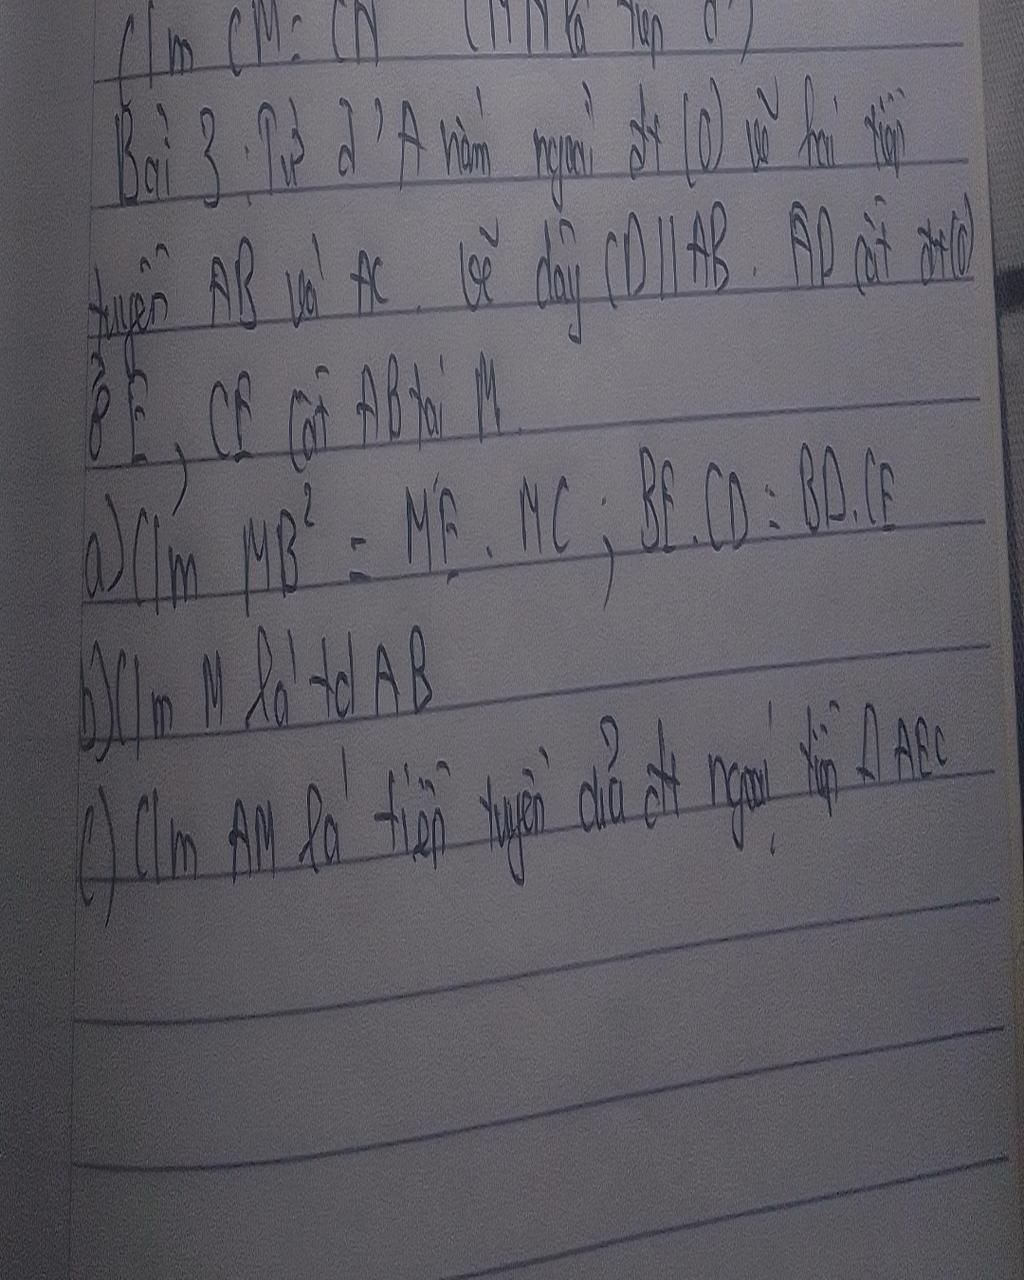 C/m CM = CN (MN là tiếp đ')
Bài 3. Từ đ' A nằm ngoài đt (O) vẽ hai tiếp
tuyến AB và AC. Vẽ dây CD // AB. AD cắt đt (O)
ở E, CE cắt AB tại M.
a) C/m MB² = ME. MC ; BE.CD = BD.CE
b) C/m M là td AB
c) C/m AM là tiếp tuyến của đt ngoại tiếp Δ AEC